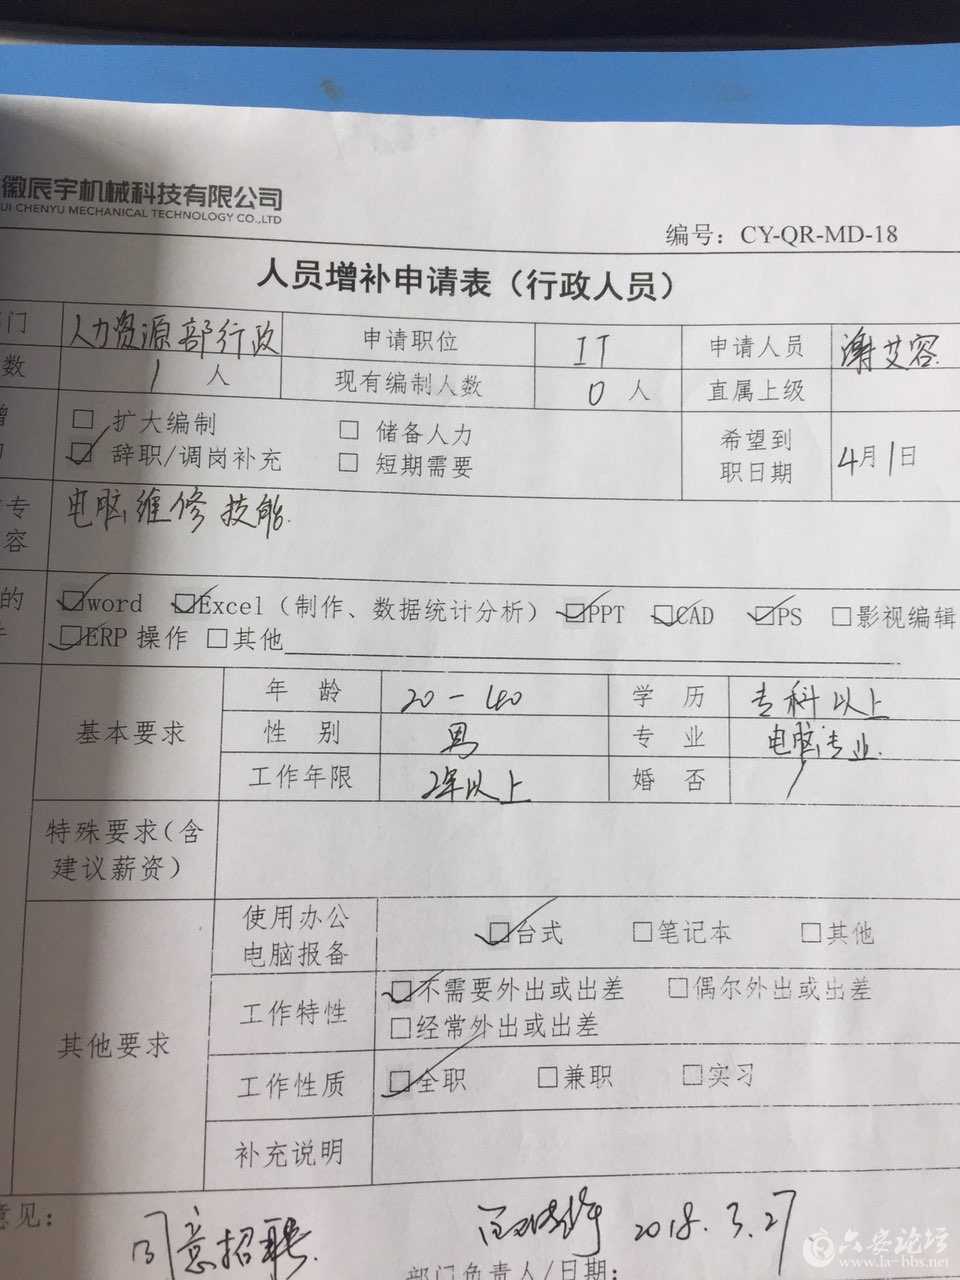 徽辰宇机械科技有限公司
UI CHENYU MECHANICAL TECHNOLOGY CO.,LTD
编号：CY-QR-MD-18
人员增补申请表（行政人员）
门 人力资源部行政 申请职位 IT 申请人员 谢艾容
数 1 人 现有编制人数 0 人 直属上级
增 □ 扩大编制 □ 储备人力 希望到
☑ 辞职/调岗补充 □ 短期需要 职日期 4月1日
专 电脑维修技能
容
的 ☑word ☑Excel（制作、数据统计分析） ☑PPT ☑CAD ☑PS □影视编辑
件 ☑ERP 操作 □其他
基本要求 年 龄 20-40 学 历 专科以上
性 别 男 专 业 电脑专业
工作年限 2年以上 婚 否 /
特殊要求（含
建议薪资）
其他要求
使用办公
电脑报备 ☑台式 □笔记本 □其他
工作特性 ☑不需要外出或出差 □偶尔外出或出差
□经常外出或出差
工作性质 ☑全职 □兼职 □实习
补充说明
意见：
同意招聘 2018.3.27
部门负责人/日期：
六安论坛
www.la-bbs.net